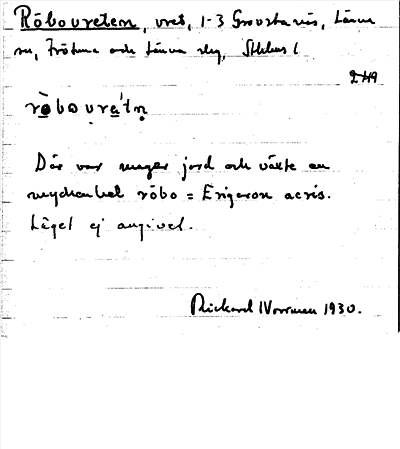 Röbovreten, vret, 1-3 Grovstanäs, Länna
sn, Frötuna och Länna slg, Sthlms l
2419
röbovretn
Där var mager jord och växte en
mycken het röbo = Erigeron acris.
Läget ej angivet.
Rickard Norrman 1930.